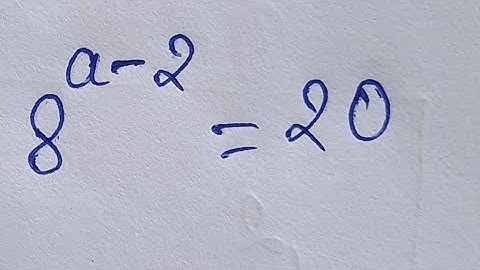 8^{a-2} = 20